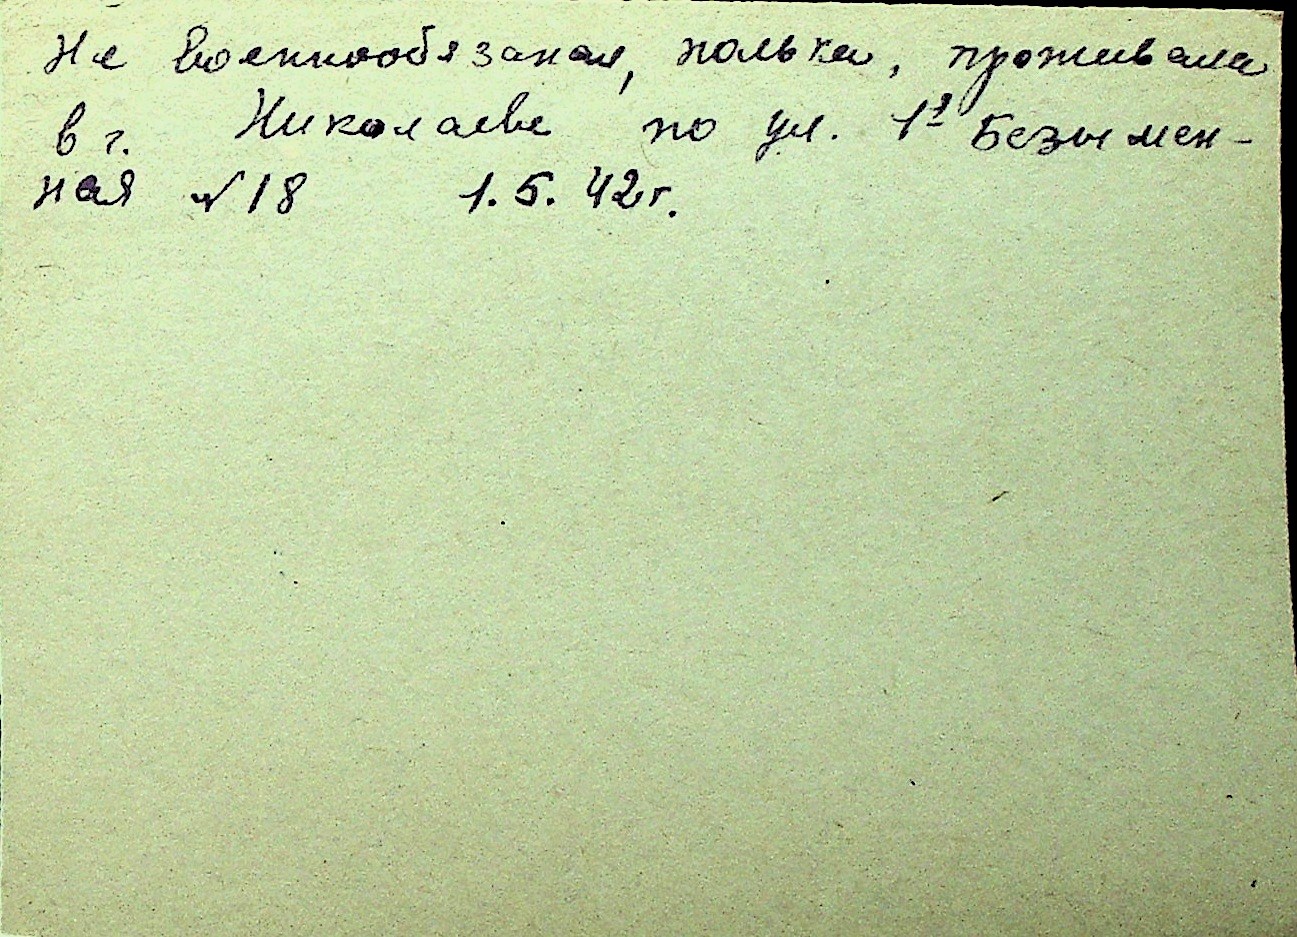 Не военнообязаная, полька, проживала
в г. Николаеве по ул. 1я Безымен-
ная №18 1.5.42г.